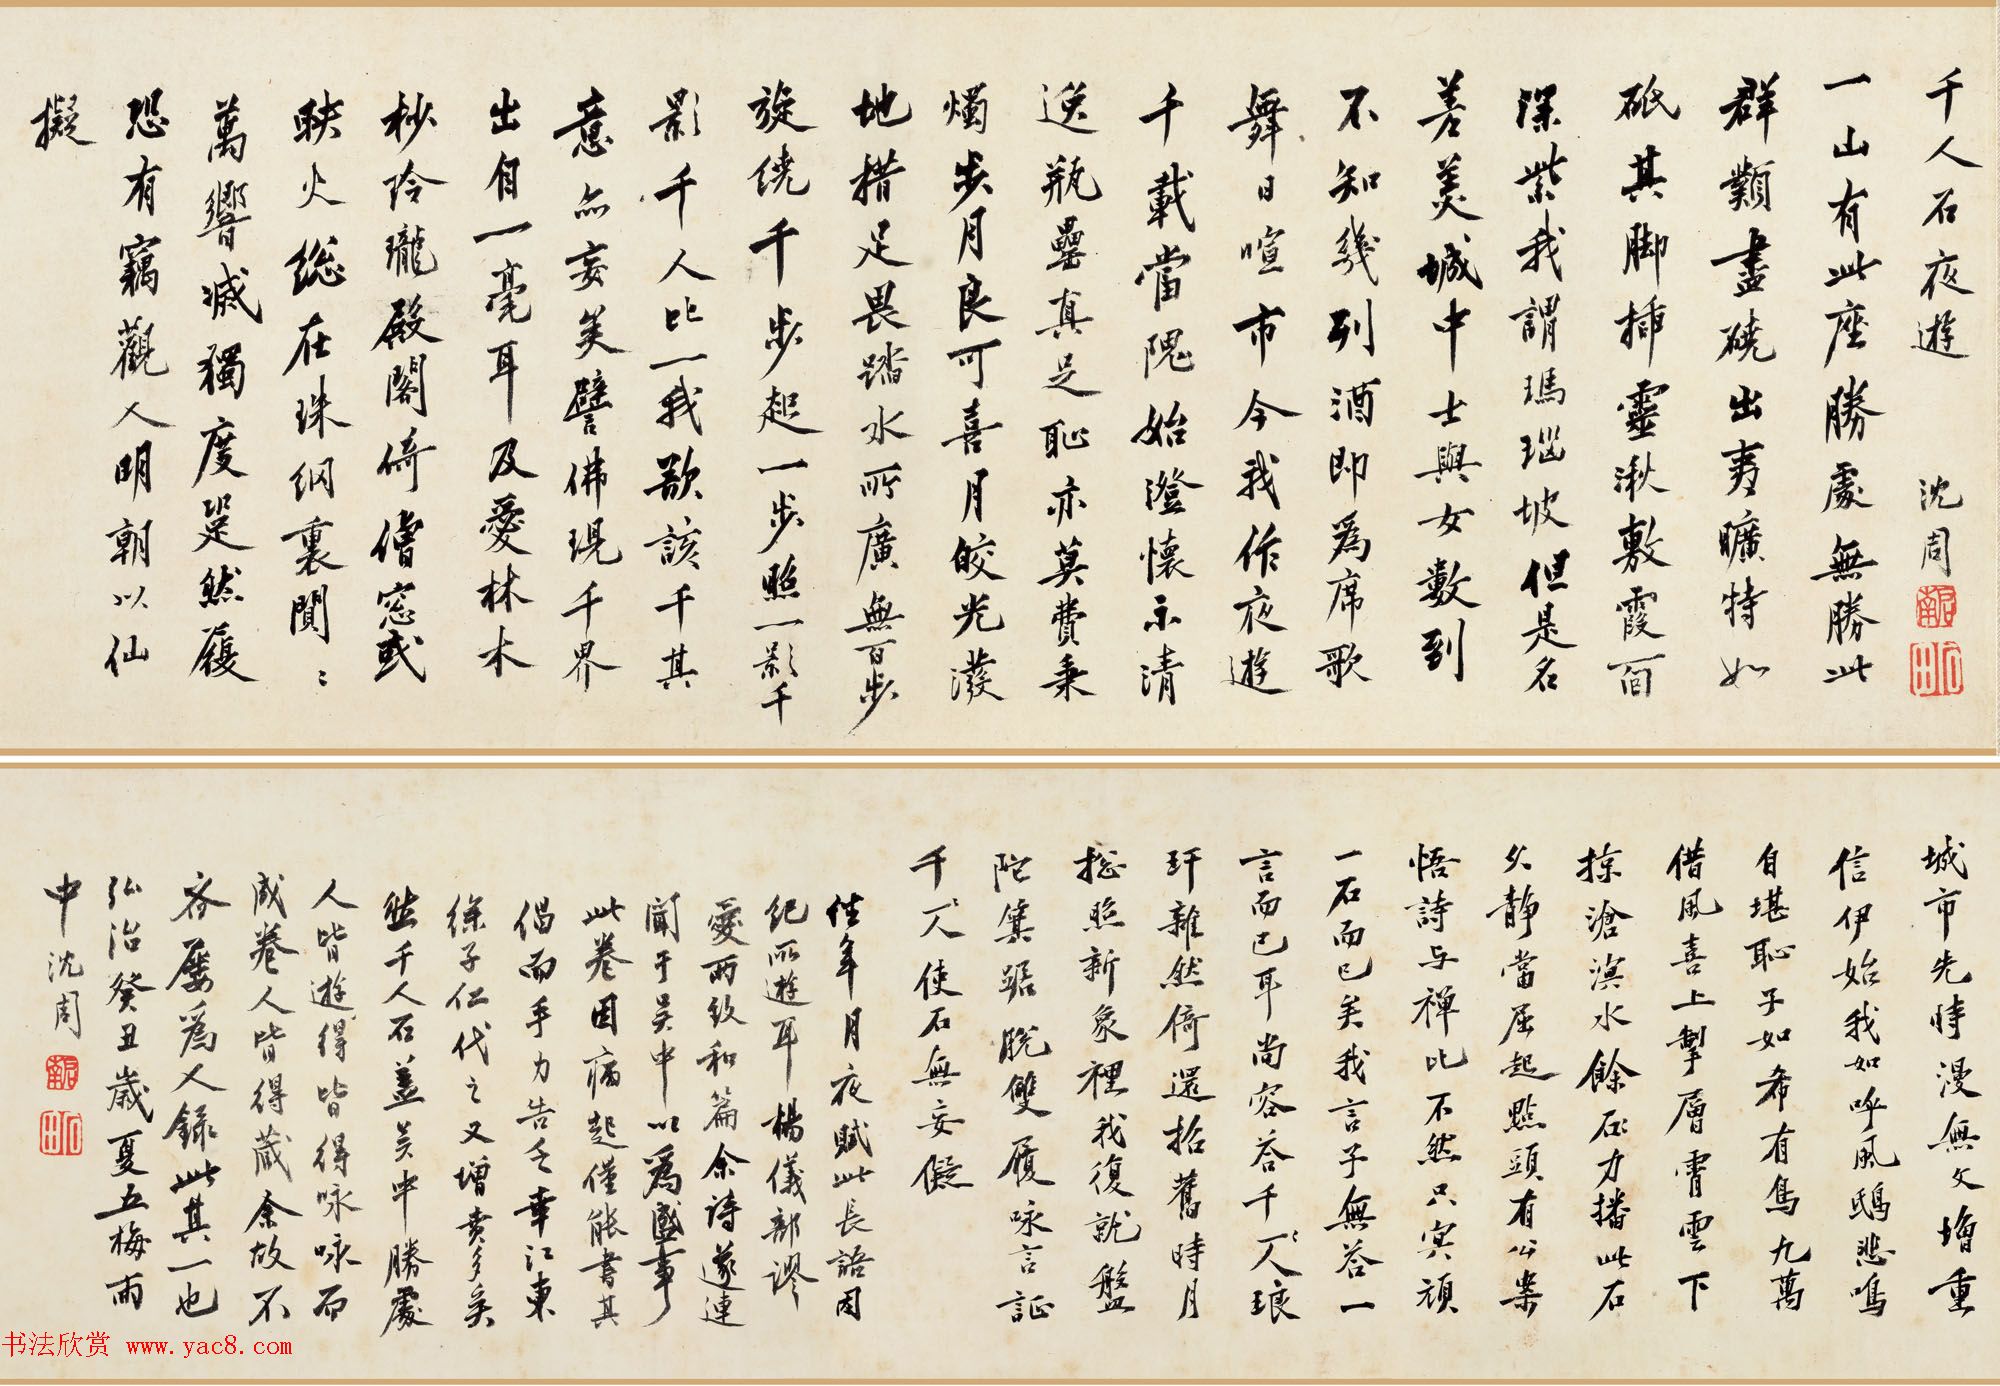 千人石夜遊 沈周
一山有此座勝處無勝此
群類盡磽出夷曠特如
砥其脚揷靈湫敷霞面
深紫我謂瑪瑙坡但是名
差美城中士與女數到
不知幾列酒即爲席歌
舞日喧市今我作夜遊
千載當隗始澄懷示清
逸瓶罍真足恥亦莫費秉
燭步月良可喜月皎光潑
地措足畏踏水所廣無百步
旋繞千步起一步照一影千
影千人比一我歌該千其
意亦妄矣譬佛現千界
出自一毫耳及愛林木
杪玲瓏殿閣倚僧窓或
映火総在珠網裏閴〻
萬響滅獨度跫然履
恐有竊觀人明朝以仙
擬
城市先時漫無文增重
信伊始我如呼風鴟悲鳴
自堪恥子如希有鳥九萬
借風喜上掣層霄雲下
掠滄溟水餘石力播此石
久静當屈起點頭有公案
悟詩与禅比不然只冥頑
一石而已矣我言子無荅一
言而已耳尚容荅千人〻琅
玕雜然倚還拾舊時月
捴照新象裡我復就盤
陀箕踞脱雙履咏言証
千人〻使石無妄儗
徃年月夜賦此長語因
紀所遊耳楊儀部謬
愛両致和篇余詩遂連
聞于吴中以爲盛事
此卷因病起僅能書其
倡而手力告乏幸江東
徐子仁代之又增賁多矣
然千人石盖吴中勝處
人皆遊得皆得咏咏而
成卷人皆得蔵余故不
吝屡爲人録此其一也
弘治癸丑歲夏五梅雨
中沈周
书法欣赏 www.yac8.com